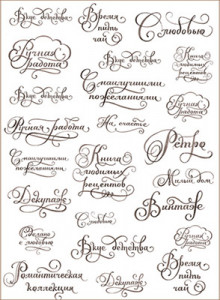 Вкус детства
Время
пить
чай
С любовью
Ручная
работа
Вкус детства
Книга
любимых
рецептов
Вкус детства
С наилучшими
пожеланиями
Ручная
работа
Ручная работа
На счастье
Ретро
С наилучшими
пожеланиями
Книга
любимых
рецептов
Милый дом
Декупаж
Винтаж
С любовью
Сделано
с любовью
Вкус детства
Ручная
работа
Романтическая
коллекция
Декупаж
Время
пить
чай